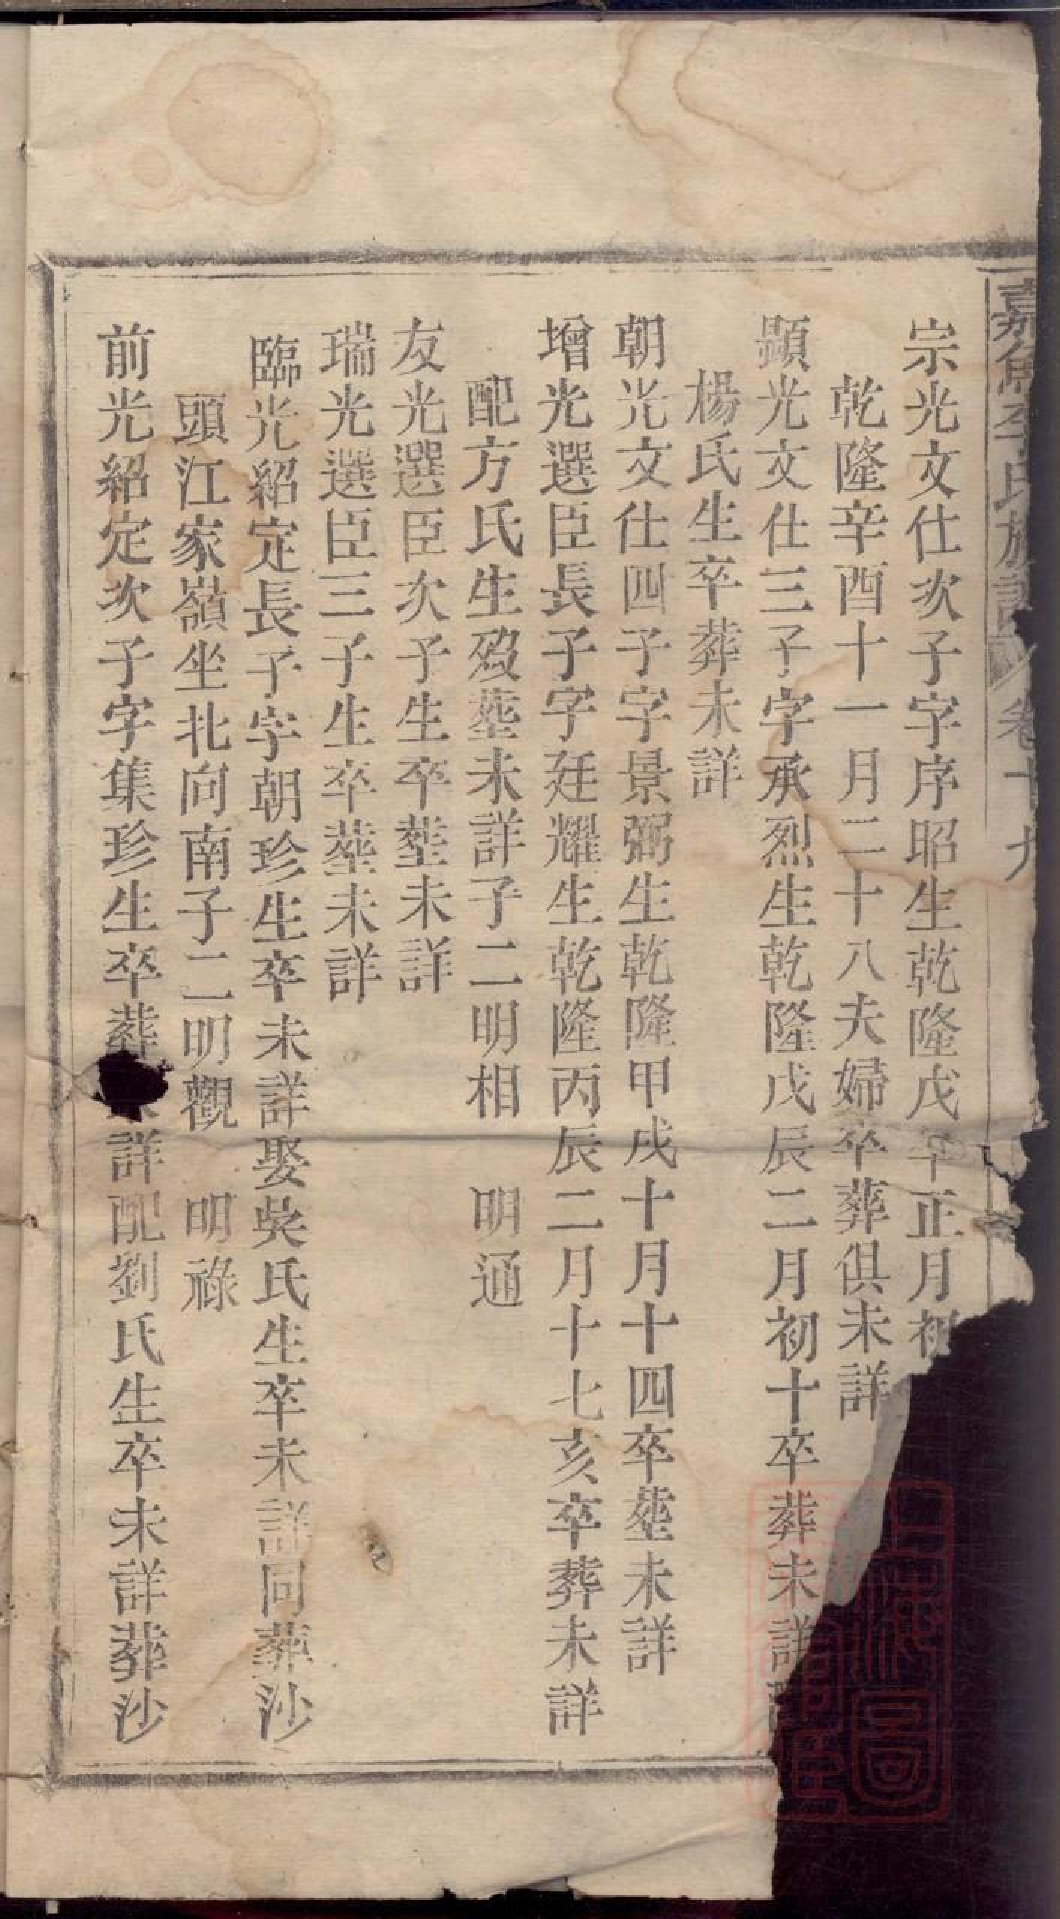 嘉魚李氏族譜 卷十九
宗光文仕次子字序昭生乾隆戊午正月初
乾隆辛酉十一月二十八夫婦卒葬俱未詳
顯光文仕三子字承烈生乾隆戊辰二月初十卒葬未詳
楊氏生卒葬未詳
朝光文仕四子字景弼生乾隆甲戌十月十四卒塟未詳
增光選臣長子字廷耀生乾隆丙辰二月十七亥卒葬未詳
配方氏生歿塟未詳子二明相 明通
友光選臣次子生卒塟未詳
瑞光選臣三子生卒塟未詳
臨光紹定長子字朝珍生卒未詳娶吳氏生卒未詳同葬沙
頭江家嶺坐北向南子二明觀 明祿
前光紹定次子字集珍生卒葬詳配劉氏生卒未詳葬沙
上海圖